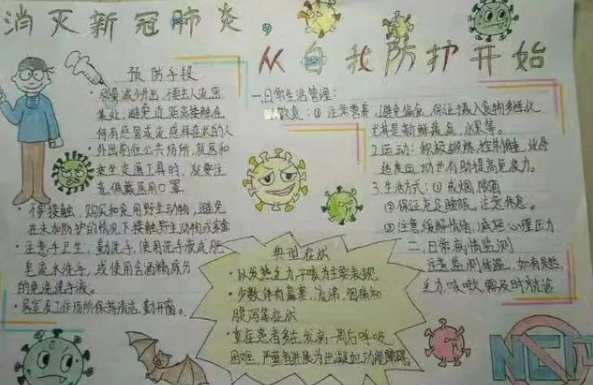 消灭新冠肺炎，
从自我防护开始
预防手段
• 尽量减少外出，不要去人流密
集处，避免近距离接触任
何有感冒或流感样症状的人
• 外出前往公共场所，就医和
乘坐交通工具时，应要注
意，佩戴医用口罩。
• 不要接触，购买和食用野生动物，避免
在未加防护的情况下接触野生动物或家禽
• 注意手卫生，勤洗手，使用洗手液或肥
皂流水洗手，或使用含酒精成分
的免洗洗手液。
• 居室及工作场所保持清洁，勤开窗。
典型症状
• 以发热乏力干咳为主要表现
• 少数伴有鼻塞，流涕，咽痛和
腹泻等症状
• 重症患者多在发病一周后呼吸
困难，
一.日常生活管理：
1.饮食：① 注意营养，避免偏食，保证摄入食物多样化
尤其是新鲜蔬菜，水果等。
2.运动：
适度运动也有助提高免疫力。
3.生活方式：① 戒烟，限酒
② 保证充足睡眠，注意休息。
③ 注意缓解情绪，减轻心理压力
二.日常病情监测
注意监测体温，如有发热，
乏力，咳嗽，需及时就诊